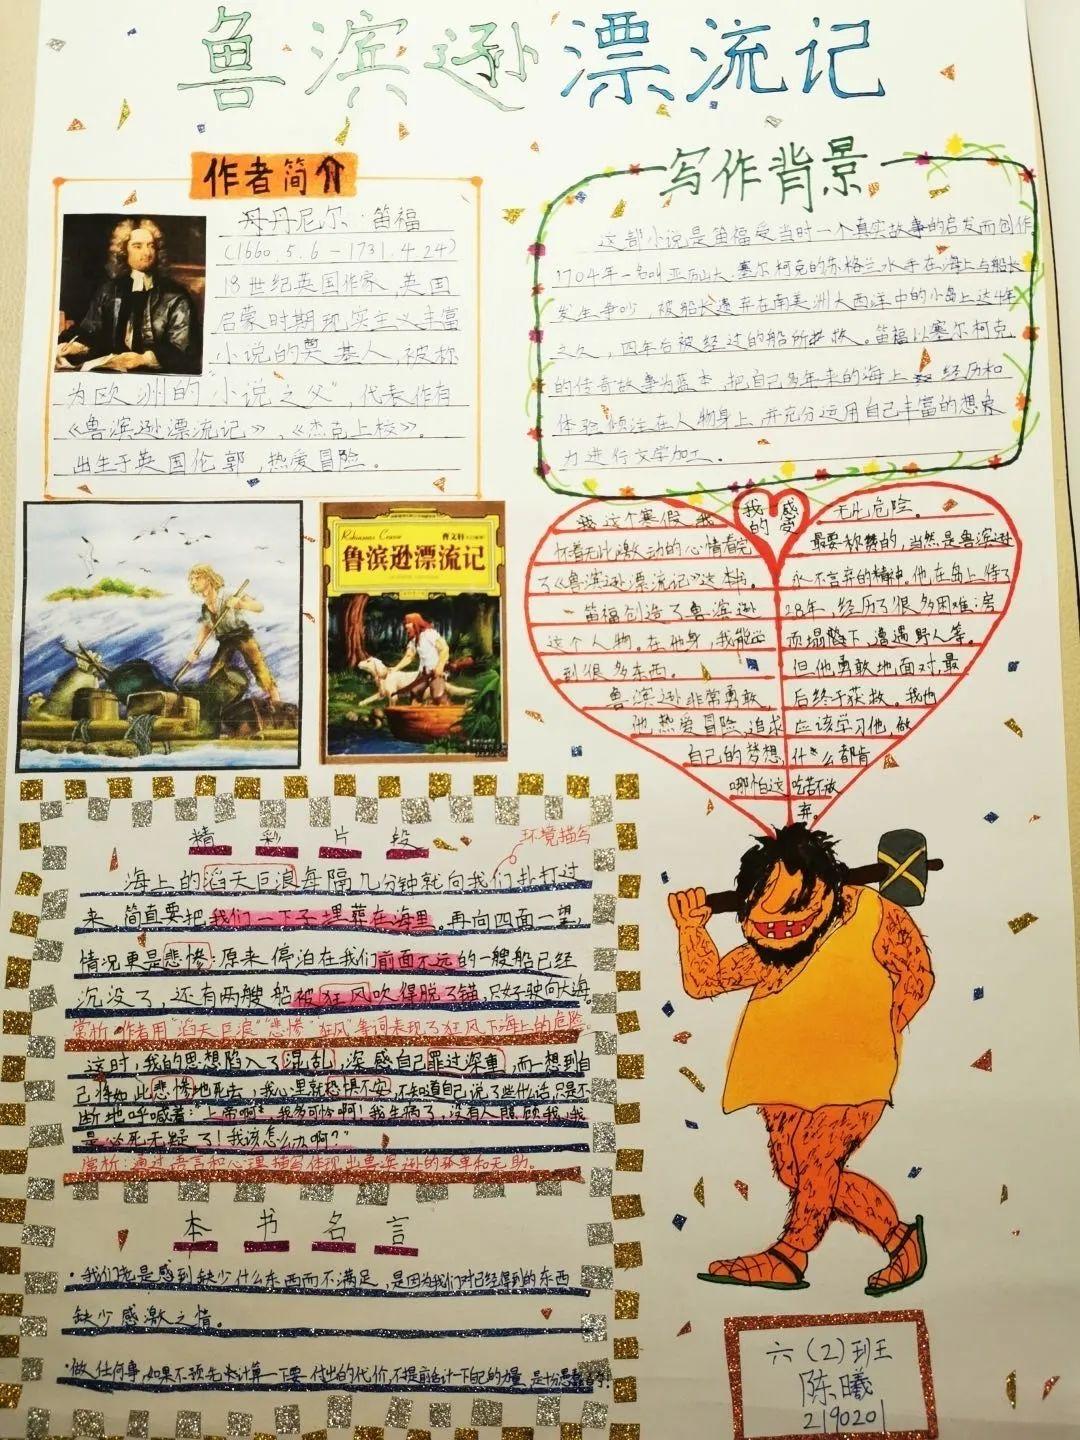 鲁滨逊漂流记
作者简介
丹丹尼尔·笛福
(1660.5.6-1731.4.24)
18世纪英国作家,英国
启蒙时期现实主义丰富
小说的奠基人,被称
为欧洲的"小说之父",代表作有
《鲁滨逊漂流记》,《杰克上校》。
出生于英国伦郭,热爱冒险。
写作背景
这部小说是笛福受当时一个真实故事的启发而创作
1704年一名叫亚历山大·塞尔柯克的苏格兰水手在海上与船长
发生争吵,被船长遗弃在南美洲大西洋中的小岛上达4年
之久,四年后被经过的船所拯救。笛福以塞尔柯克
的传奇故事为蓝本,把自己多年来的海上经历和
体验倾注在人物身上,并充分运用自己丰富的想象
力进行文学加工。
Robinson Crusoe
曹文轩
鲁滨逊漂流记
我的感受
我这个寒假,我
怀着无比激动的心情看完
了《鲁滨逊漂流记》这本书。
笛福创造了鲁滨逊
这个人物。在他身,我能学
到很多东西。
鲁滨逊非常勇敢,
他热爱冒险,追求
自己的梦想,
哪怕这
无比危险。
最要称赞的,当然是鲁滨逊
永不言弃的精神。他在岛上待了
28年,经历了很多困难:房
顶塌陷下,遭遇野人等。
但他勇敢地面对,最
后终于获救。我也
应该学习他,做
什么都肯
吃苦不放
弃。
精彩片段
环境描写
海上的滔天巨浪每隔几分钟就向我们扑打过
来,简直要把我们一下子埋葬在海里。再向四面一望,
情况更是悲惨:原来停泊在我们前面不远的一艘船已经
沉没了,还有两艘船被狂风吹得脱了锚,只好驶向大海。
赏析:作者用"滔天巨浪""悲惨""狂风"等词表现了狂风下海上的危险。
这时,我的思想陷入了混乱,深感自己罪过深重,而一想到自
己将如此悲惨地死去,我心里就恐惧不安,不知道自己说了些什么话,只是不
断地呼喊着:"上帝啊,我多可怜啊!我生病了,没有人照顾我,我
是必死无疑了!我该怎么办啊?"
赏析:通过语言和心理描写体现出鲁滨逊的孤单和无助。
本书名言
·我们老是感到缺少什么东西而不满足,是因为我们对已经得到的东西
缺少感激之情。
·做任何事,如果不预先来计算一下要付出的代价,不提前估计一下自己的力量,是十分愚蠢
六(2)班
陈曦
2190201